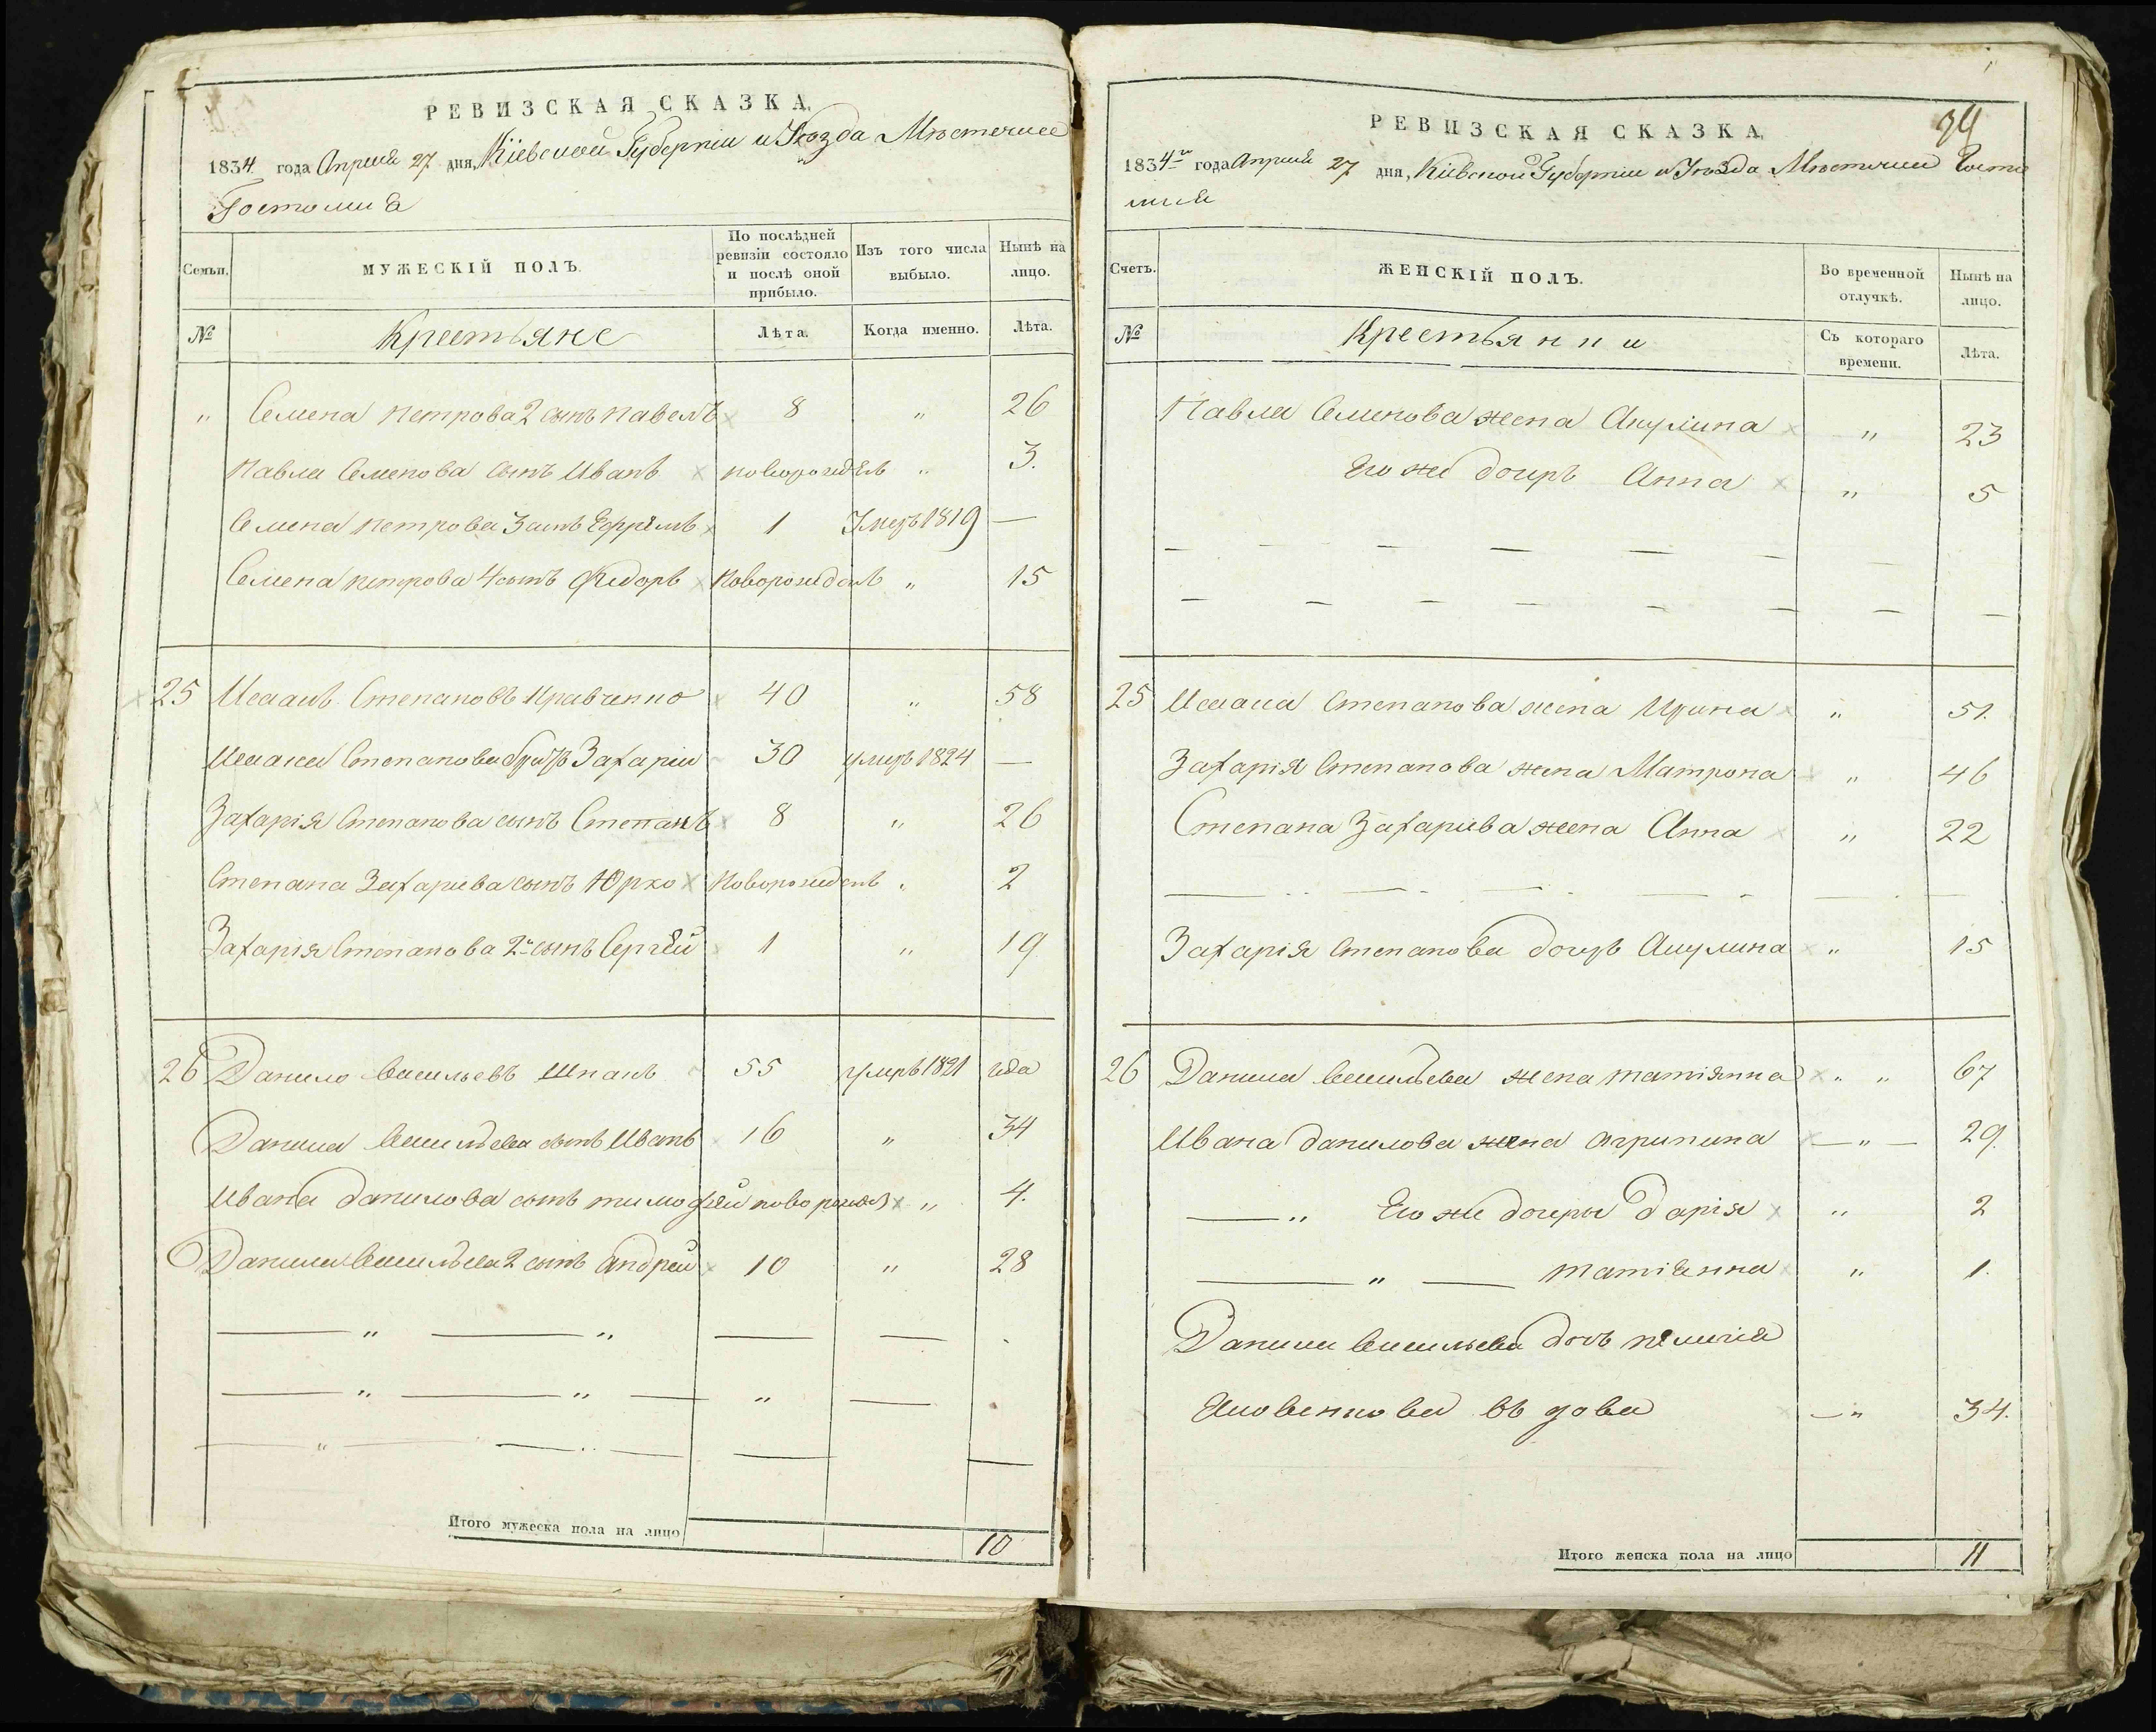 РЕВИЗСКАЯ СКАЗКА,
1834 года Априля 27 дня, Кіевской Губерніи и Уѣзда Мѣстечка
Гостомля
Семьи. МУЖЕСКІЙ ПОЛЪ. По послѣдней ревизіи состояло и послѣ оной прибыло. Изъ того числа выбыло. Нынѣ на лицо.
№ Крестьяне Лѣта. Когда именно. Лѣта.
„ Семена Петрова 2 сынъ Павелъ 8 „ 26
Павла Семенова сынъ Иванъ новорожденъ „ 3.
Семена Петрова 3 сынъ Ефремъ 1 Умеръ 1819 —
Семена Петрова 4 сынъ Федоръ новорожденъ „ 15
25 Исаакъ Степановъ Кравченко 40 „ 58
Исаака Степанова братъ Захарій 30 умеръ 1824 —
Захарія Степанова сынъ Степанъ 8 „ 26
Степана Захарьева сынъ Юрко новорожденъ „ 2
Захарія Степанова 2й сынъ Сергѣй 1 „ 19
26 Данило Васильевъ Шпакъ 55 умеръ 1821 года
Данила Васильева сынъ Иванъ 16 „ 34
Ивана Данилова сынъ Тимофей новорожден „ 4.
Данила Васильева 2 сынъ Андрей 10 „ 28
Итого мужеска пола на лицо 10
94
РЕВИЗСКАЯ СКАЗКА,
1834го года Априля 27 дня, Кіевской Губерніи и Уѣзда Мѣстечка Госто
мля
Счетъ. ЖЕНСКІЙ ПОЛЪ. Во временной отлучкѣ. Нынѣ на лицо.
№ Крестьянки Съ котораго времени. Лѣта.
Павла Семенова жена Акулина „ 23
Его же дочерь Анна „ 5
25 Исаака Степанова жена Ирина „ 51.
Захарія Степанова жена Матрона „ 46
Степана Захарьева жена Анна „ 22
Захарія Степанова дочерь Акулина „ 15
26 Данила Васильева жена Татіянна „ „ 67
Ивана Данилова жена Агрипина — „ — 29.
— „ Его же дочеры Дарія „ 2
— „ — Татіянна „ 1.
Данила Васильева дочь
вдова — „ 34.
Итого женска пола на лицо 11